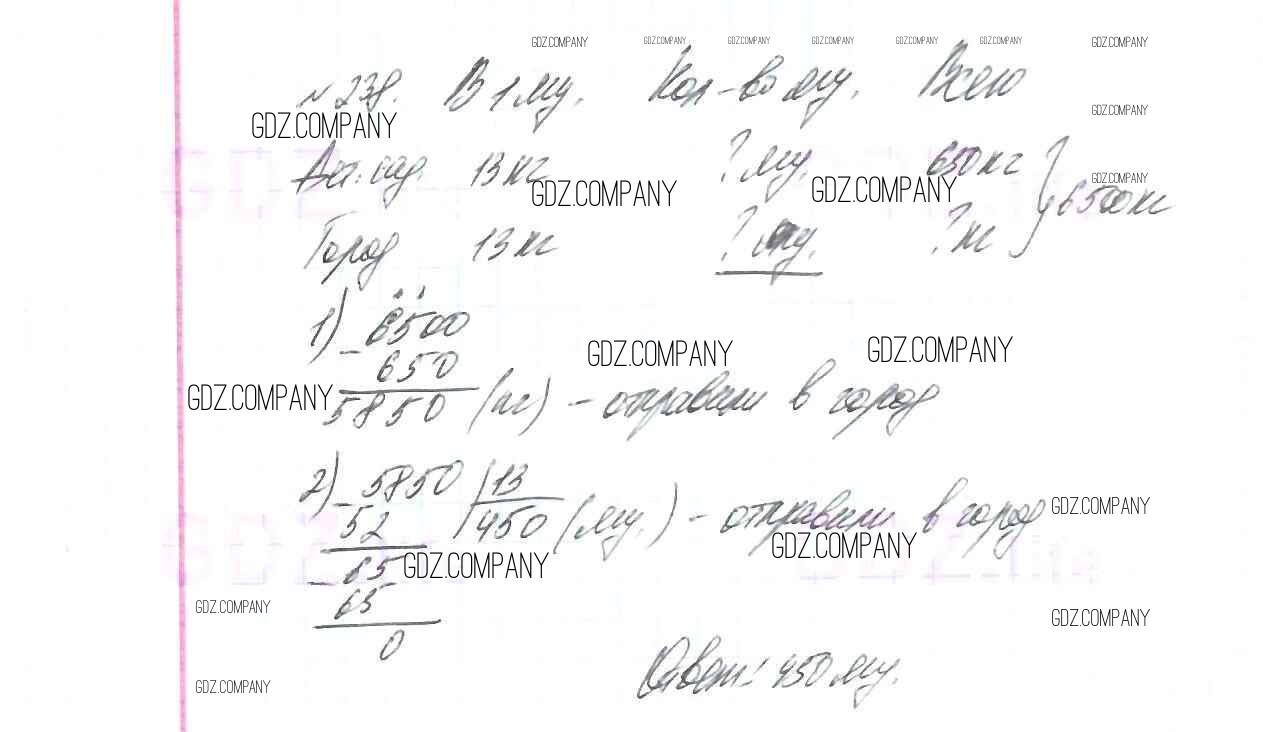 GDZ.COMPANY GDZ.COMPANY GDZ.COMPANY GDZ.COMPANY GDZ.COMPANY GDZ.COMPANY GDZ.COMPANY
№238. В 1 ящ. Кол-во ящ. Всего
GDZ.COMPANY GDZ.COMPANY
13 кг ? ящ. 650 кг
GDZ.COMPANY GDZ.COMPANY GDZ.COMPANY
} 6500 кг
Город 13 кг ? ящ. ? кг
1) - 6500
650
GDZ.COMPANY GDZ.COMPANY
GDZ.COMPANY 5850 (кг) - отправили в город
2) - 5850 | 13
52 450 (ящ.) - отправили в город GDZ.COMPANY
GDZ.COMPANY GDZ.COMPANY
- 65
65
GDZ.COMPANY GDZ.COMPANY
0
Ответ: 450 ящ.
GDZ.COMPANY